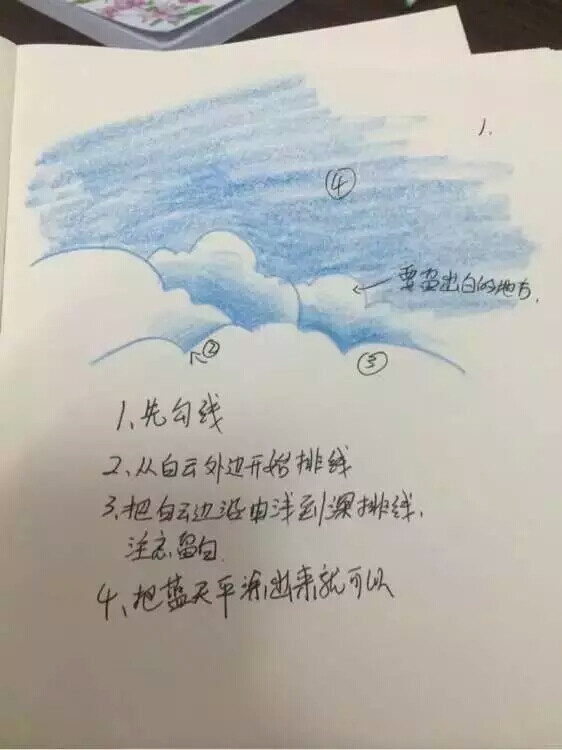 1.
④
要留出白的地方.
②
③
1、先勾线
2、从白云外边开始排线
3、把白云边沿由浅到深排线,
注意留白.
4、把蓝天平涂出来就可以